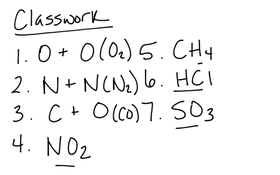 Classwork
1. O + O (O₂) 5. CH₄
2. N + N (N₂) 6. HCl
3. C + O (CO) 7. SO₃
4. NO₂